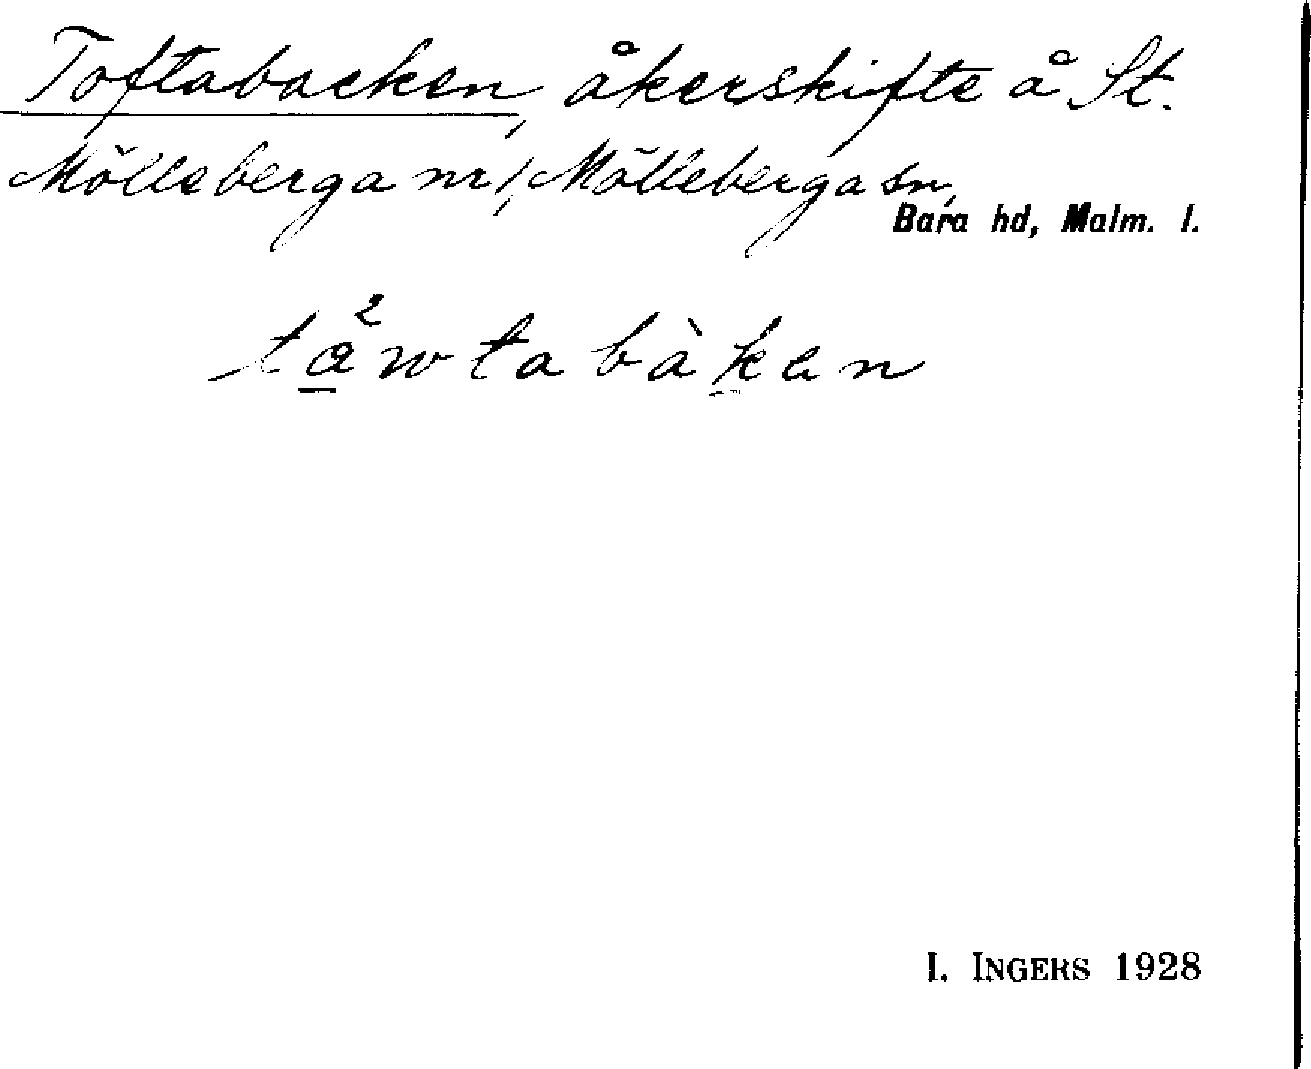 Toftabacken, åkerskifte å St.
Mölleberga nr 1, Mölleberga sn,
Bara hd, Malm. l.
ta²wtabàkan
I. INGERS 1928